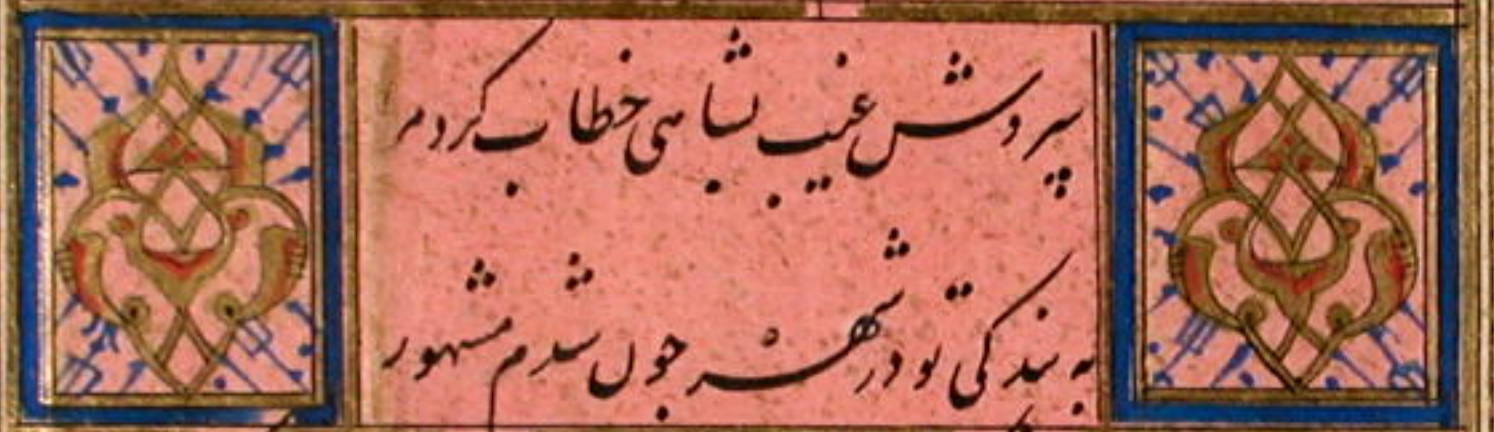 سروش غیب بشاهی خطاب کردم
به بندکی تو در شهر چون شدم مشهور